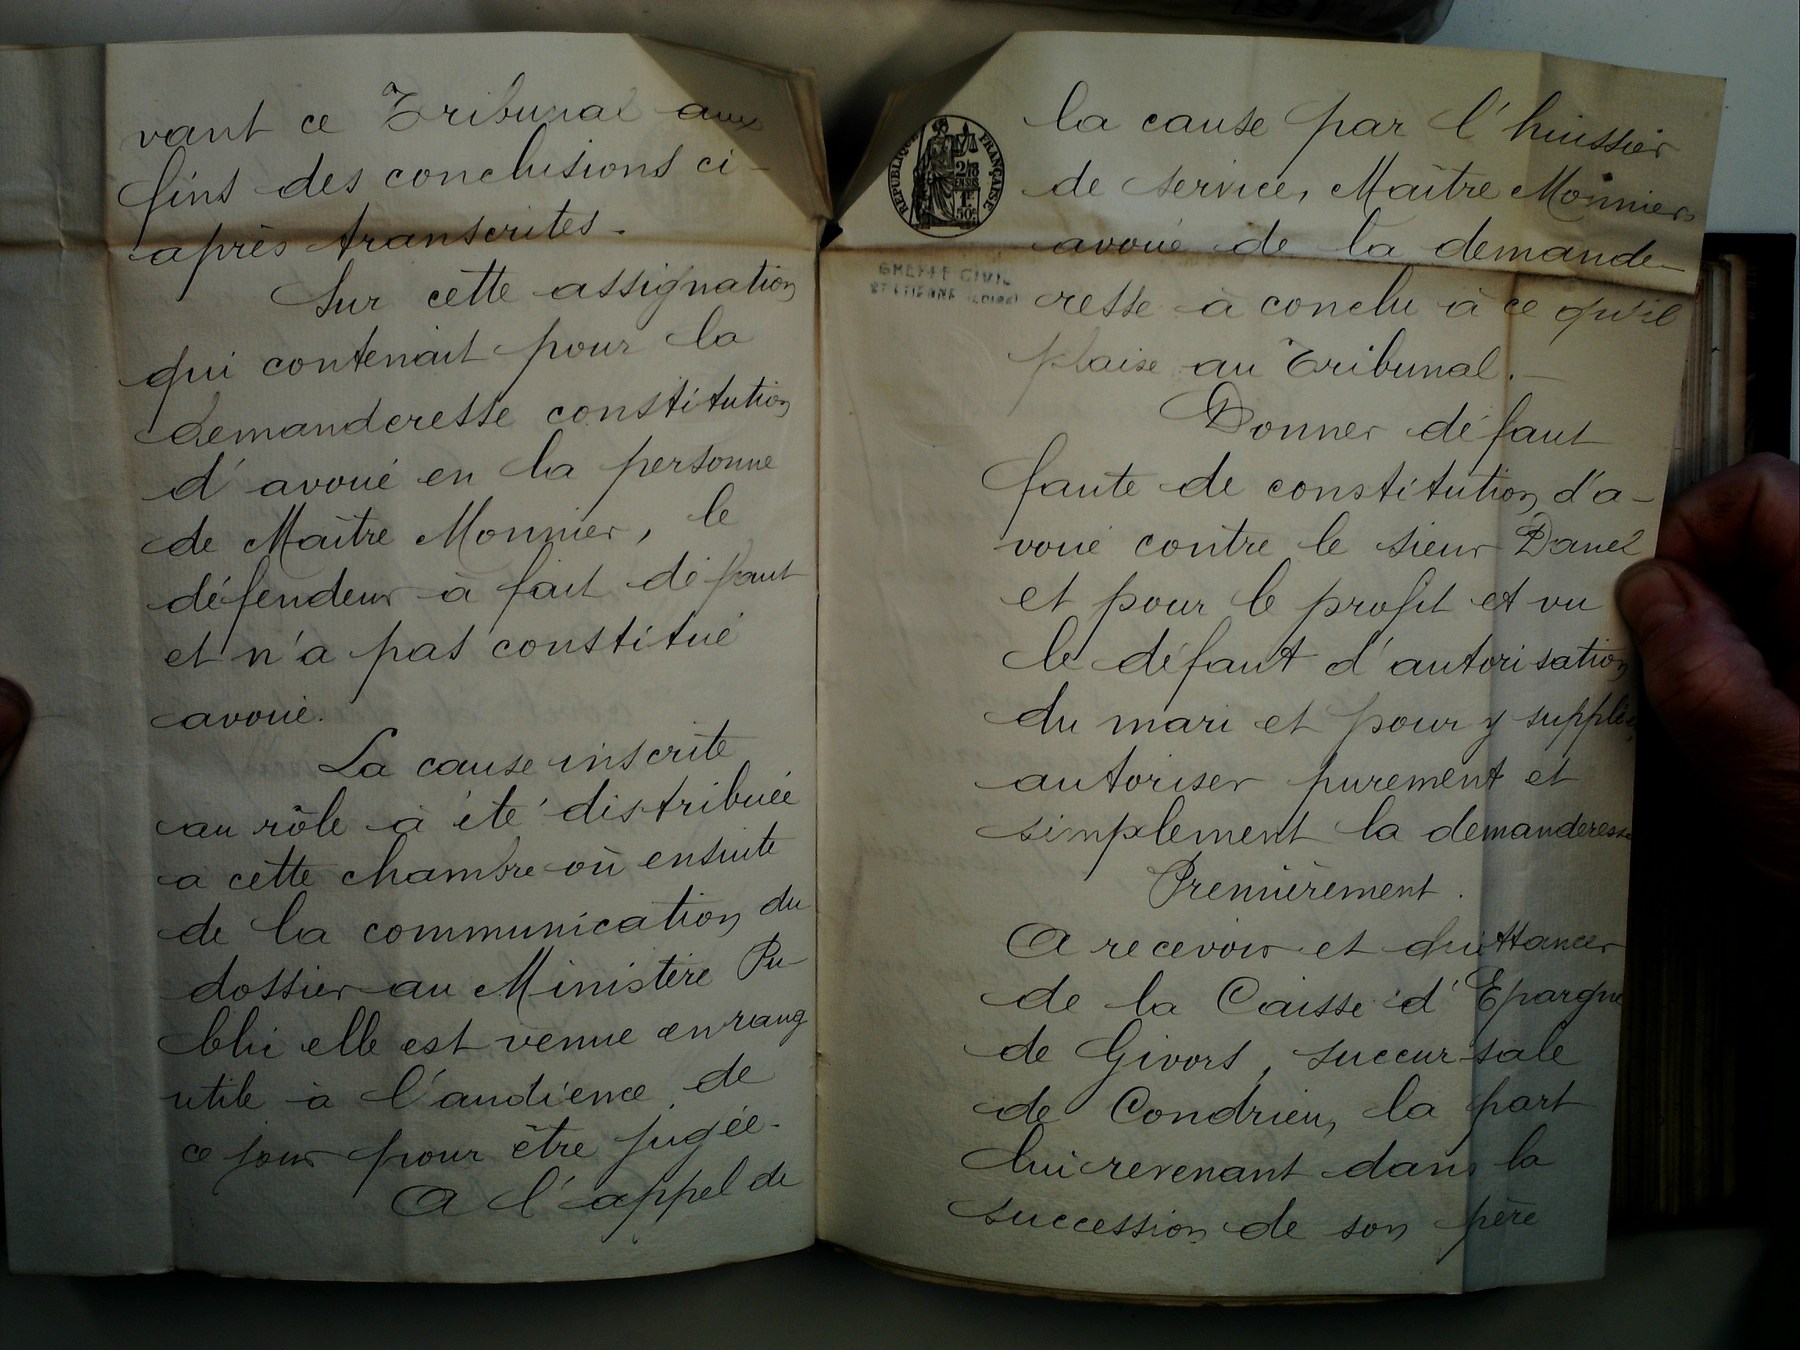 vant ce Tribunal aux
fins des conclusions ci-
après transcrites.
Sur cette assignation
qui contenait pour la
demanderesse constitution
d'avoué en la personne
de Maître Monnier, le
défendeur à fait défaut
et n'a pas constitué
avoué.
La cause inscrite
au rôle à été distribuée
a cette chambre où ensuite
de la communication du
dossier au Ministère Pu-
blic elle est venue en rang
utile à l'audience de
ce jour pour être jugée.
A l'appel de
RÉPUBLIQUE FRANÇAISE
2/10
EN SUS
1F
50c
GREFFE CIVIL
ST ETIENNE (LOIRE)
la cause par l'huissier
de service, Maître Monnier
avoué de la demande-
resse à conclu à ce qu'il
plaise au Tribunal.-
Donner défaut
faute de constitution d'a-
voué contre le sieur Danel
et pour le profit et vu
le défaut d'autorisation
du mari et pour y suppléer,
autoriser purement et
simplement la demanderesse
Premièrement.
A recevoir et quittancer
de la Caisse d'Epargne
de Givors, succursale
de Condrieu, la part
lui revenant dans la
succession de son père